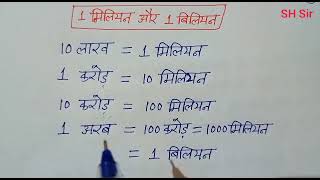 SH Sir
1 मिलियन और 1 बिलियन
10 लाख = 1 मिलियन
1 करोड़ = 10 मिलियन
10 करोड़ = 100 मिलियन
1 अरब = 100 करोड़ = 1000 मिलियन
= 1 बिलियन